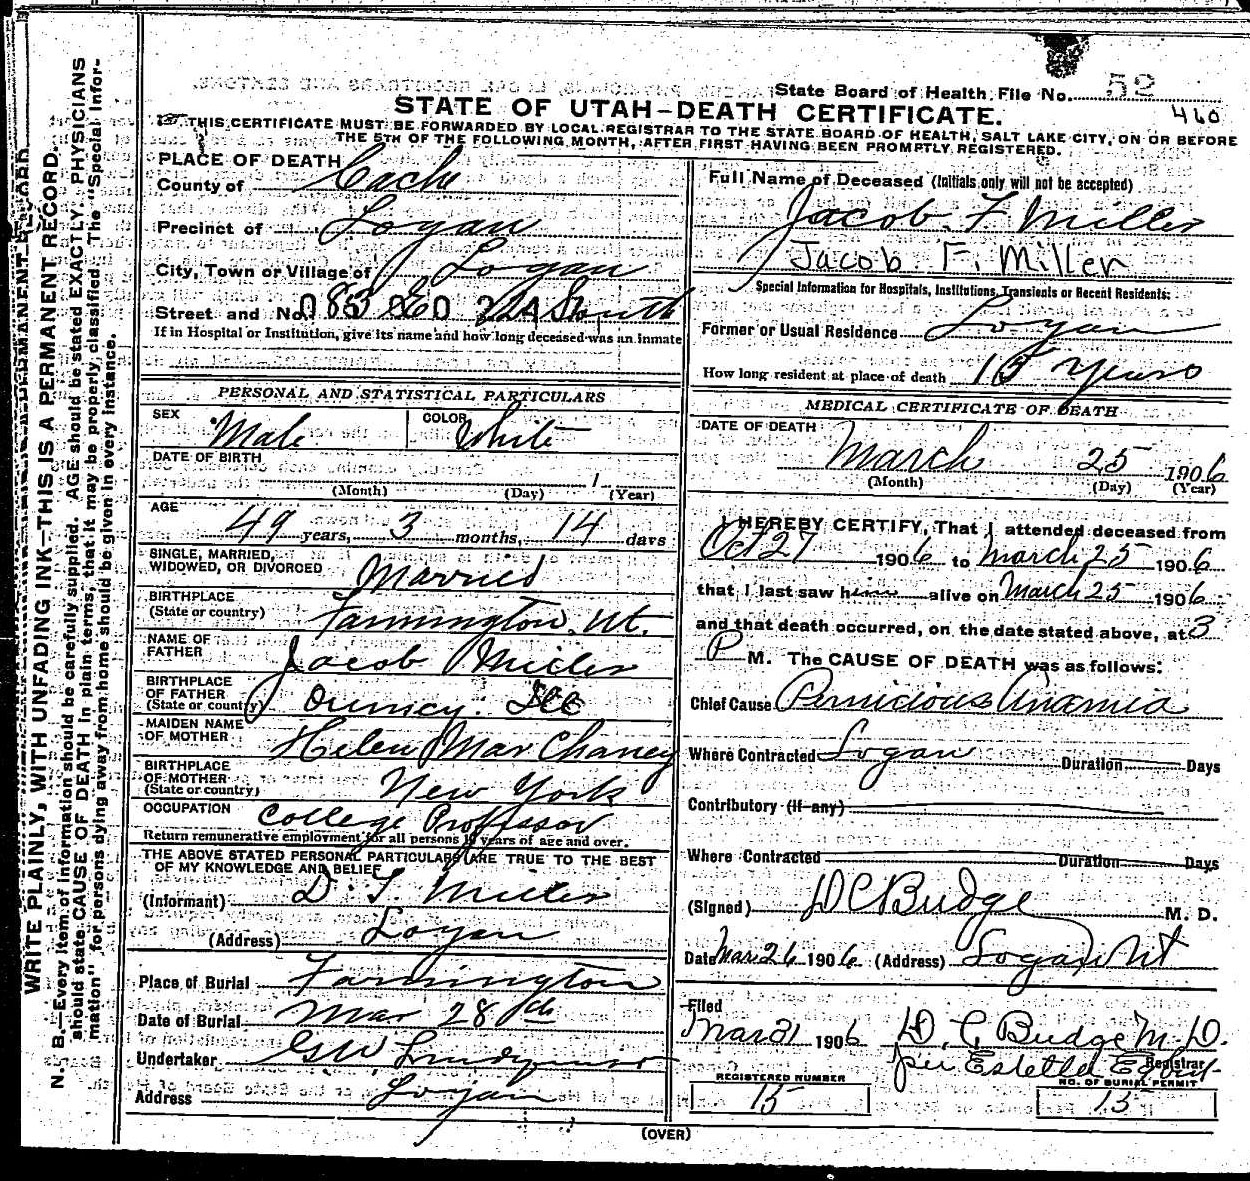 State Board of Health File No. 52
STATE OF UTAH—DEATH CERTIFICATE.
460
THIS CERTIFICATE MUST BE FORWARDED BY LOCAL REGISTRAR TO THE STATE BOARD OF HEALTH, SALT LAKE CITY, ON OR BEFORE
THE 5TH OF THE FOLLOWING MONTH, AFTER FIRST HAVING BEEN PROMPTLY REGISTERED.
WRITE PLAINLY, WITH UNFADING INK—THIS IS A PERMANENT RECORD.
N. B.—Every item of information should be carefully supplied. AGE should be stated EXACTLY. PHYSICIANS
should state CAUSE OF DEATH in plain terms, that it may be properly classified. The "Special Infor-
mation" for persons dying away from home should be given in every instance.
PLACE OF DEATH
County of Cache
Precinct of Logan
City, Town or Village of Logan
Street and No. South
If in Hospital or Institution, give its name and how long deceased was an inmate
PERSONAL AND STATISTICAL PARTICULARS
SEX Male COLOR White
DATE OF BIRTH
1
(Month) (Day) (Year)
AGE
49 years, 3 months, 14 days
SINGLE, MARRIED,
WIDOWED, OR DIVORCED Married
BIRTHPLACE
(State or country) Farmington, Ut.
NAME OF
FATHER Jacob Miller
BIRTHPLACE
OF FATHER
(State or country) Quincy. Ill
MAIDEN NAME
OF MOTHER Helen Mar Chaney
BIRTHPLACE
OF MOTHER
(State or country) New York
OCCUPATION College Proffssor
Return remunerative employment for all persons 10 years of age and over.
THE ABOVE STATED PERSONAL PARTICULARS ARE TRUE TO THE BEST
OF MY KNOWLEDGE AND BELIEF
(Informant) D. T. Miller
(Address) Logan
Place of Burial Farmington
Date of Burial Mar 28th
Undertaker
Address Logan
Full Name of Deceased (Initials only will not be accepted)
Jacob. F. Miller
Jacob F. Miller
Special Information for Hospitals, Institutions, Transients or Recent Residents:
Former or Usual Residence Logan
How long resident at place of death 15 Years
MEDICAL CERTIFICATE OF DEATH
DATE OF DEATH
March 25 1906
(Month) (Day) (Year)
I HEREBY CERTIFY, That I attended deceased from
Oct 27 1906 to March 25 1906
that I last saw him alive on March 25 1906
and that death occurred, on the date stated above, at 3
P M. The CAUSE OF DEATH was as follows:
Chief Cause Pernicious Anamia
Where Contracted Logan Duration Days
Contributory (if any)
Where Contracted Duration Days
(Signed) D C Budge M. D.
Date Mar 26 1906 (Address) Logan Ut
Filed
Mar 31 1906 D. C. Budge M. D.
Registrar
per Estella
REGISTERED NUMBER
15
NO. OF BURIAL PERMIT
15
(OVER)